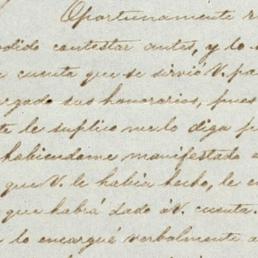 Oportunamente r
odido contestar antes, y lo s
a cuenta que se sirvió V. pa
rgado sus honorarios, pues
te le suplico me lo diga p
habiendome manifestado a
que V. le habia hecho, le e
que habiá dado á V. cuenta.
lo encargué verbalmente a